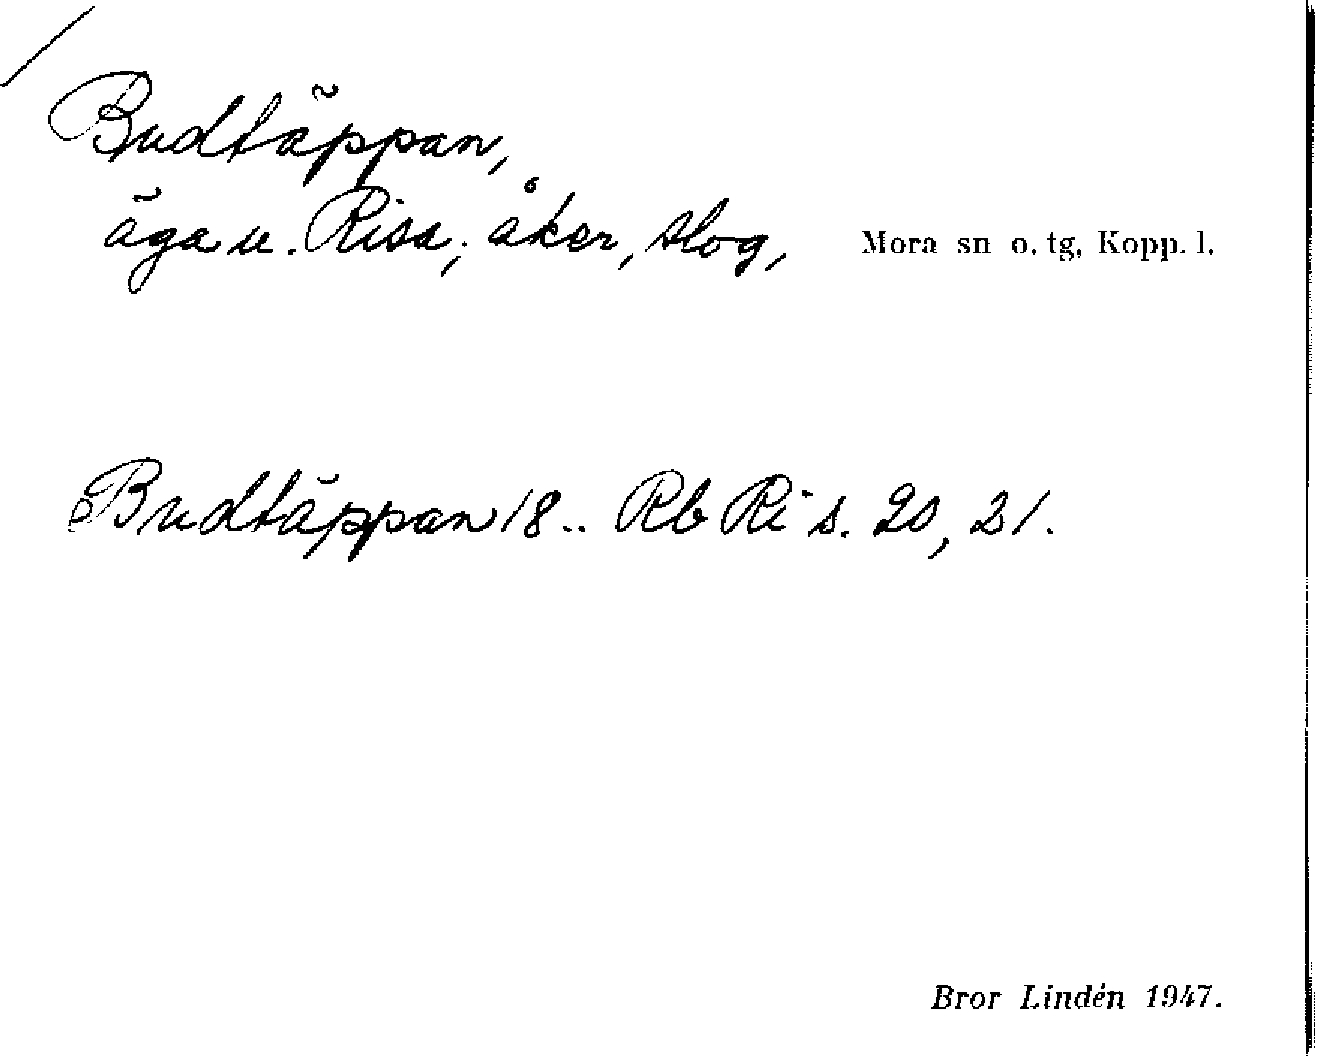 Budtäppan,
äga u. Risa; åker, slog, Mora sn o. tg, Kopp. l.
Budtäppan 18.. Rb Ri s. 20, 21.
Bror Lindén 1947.